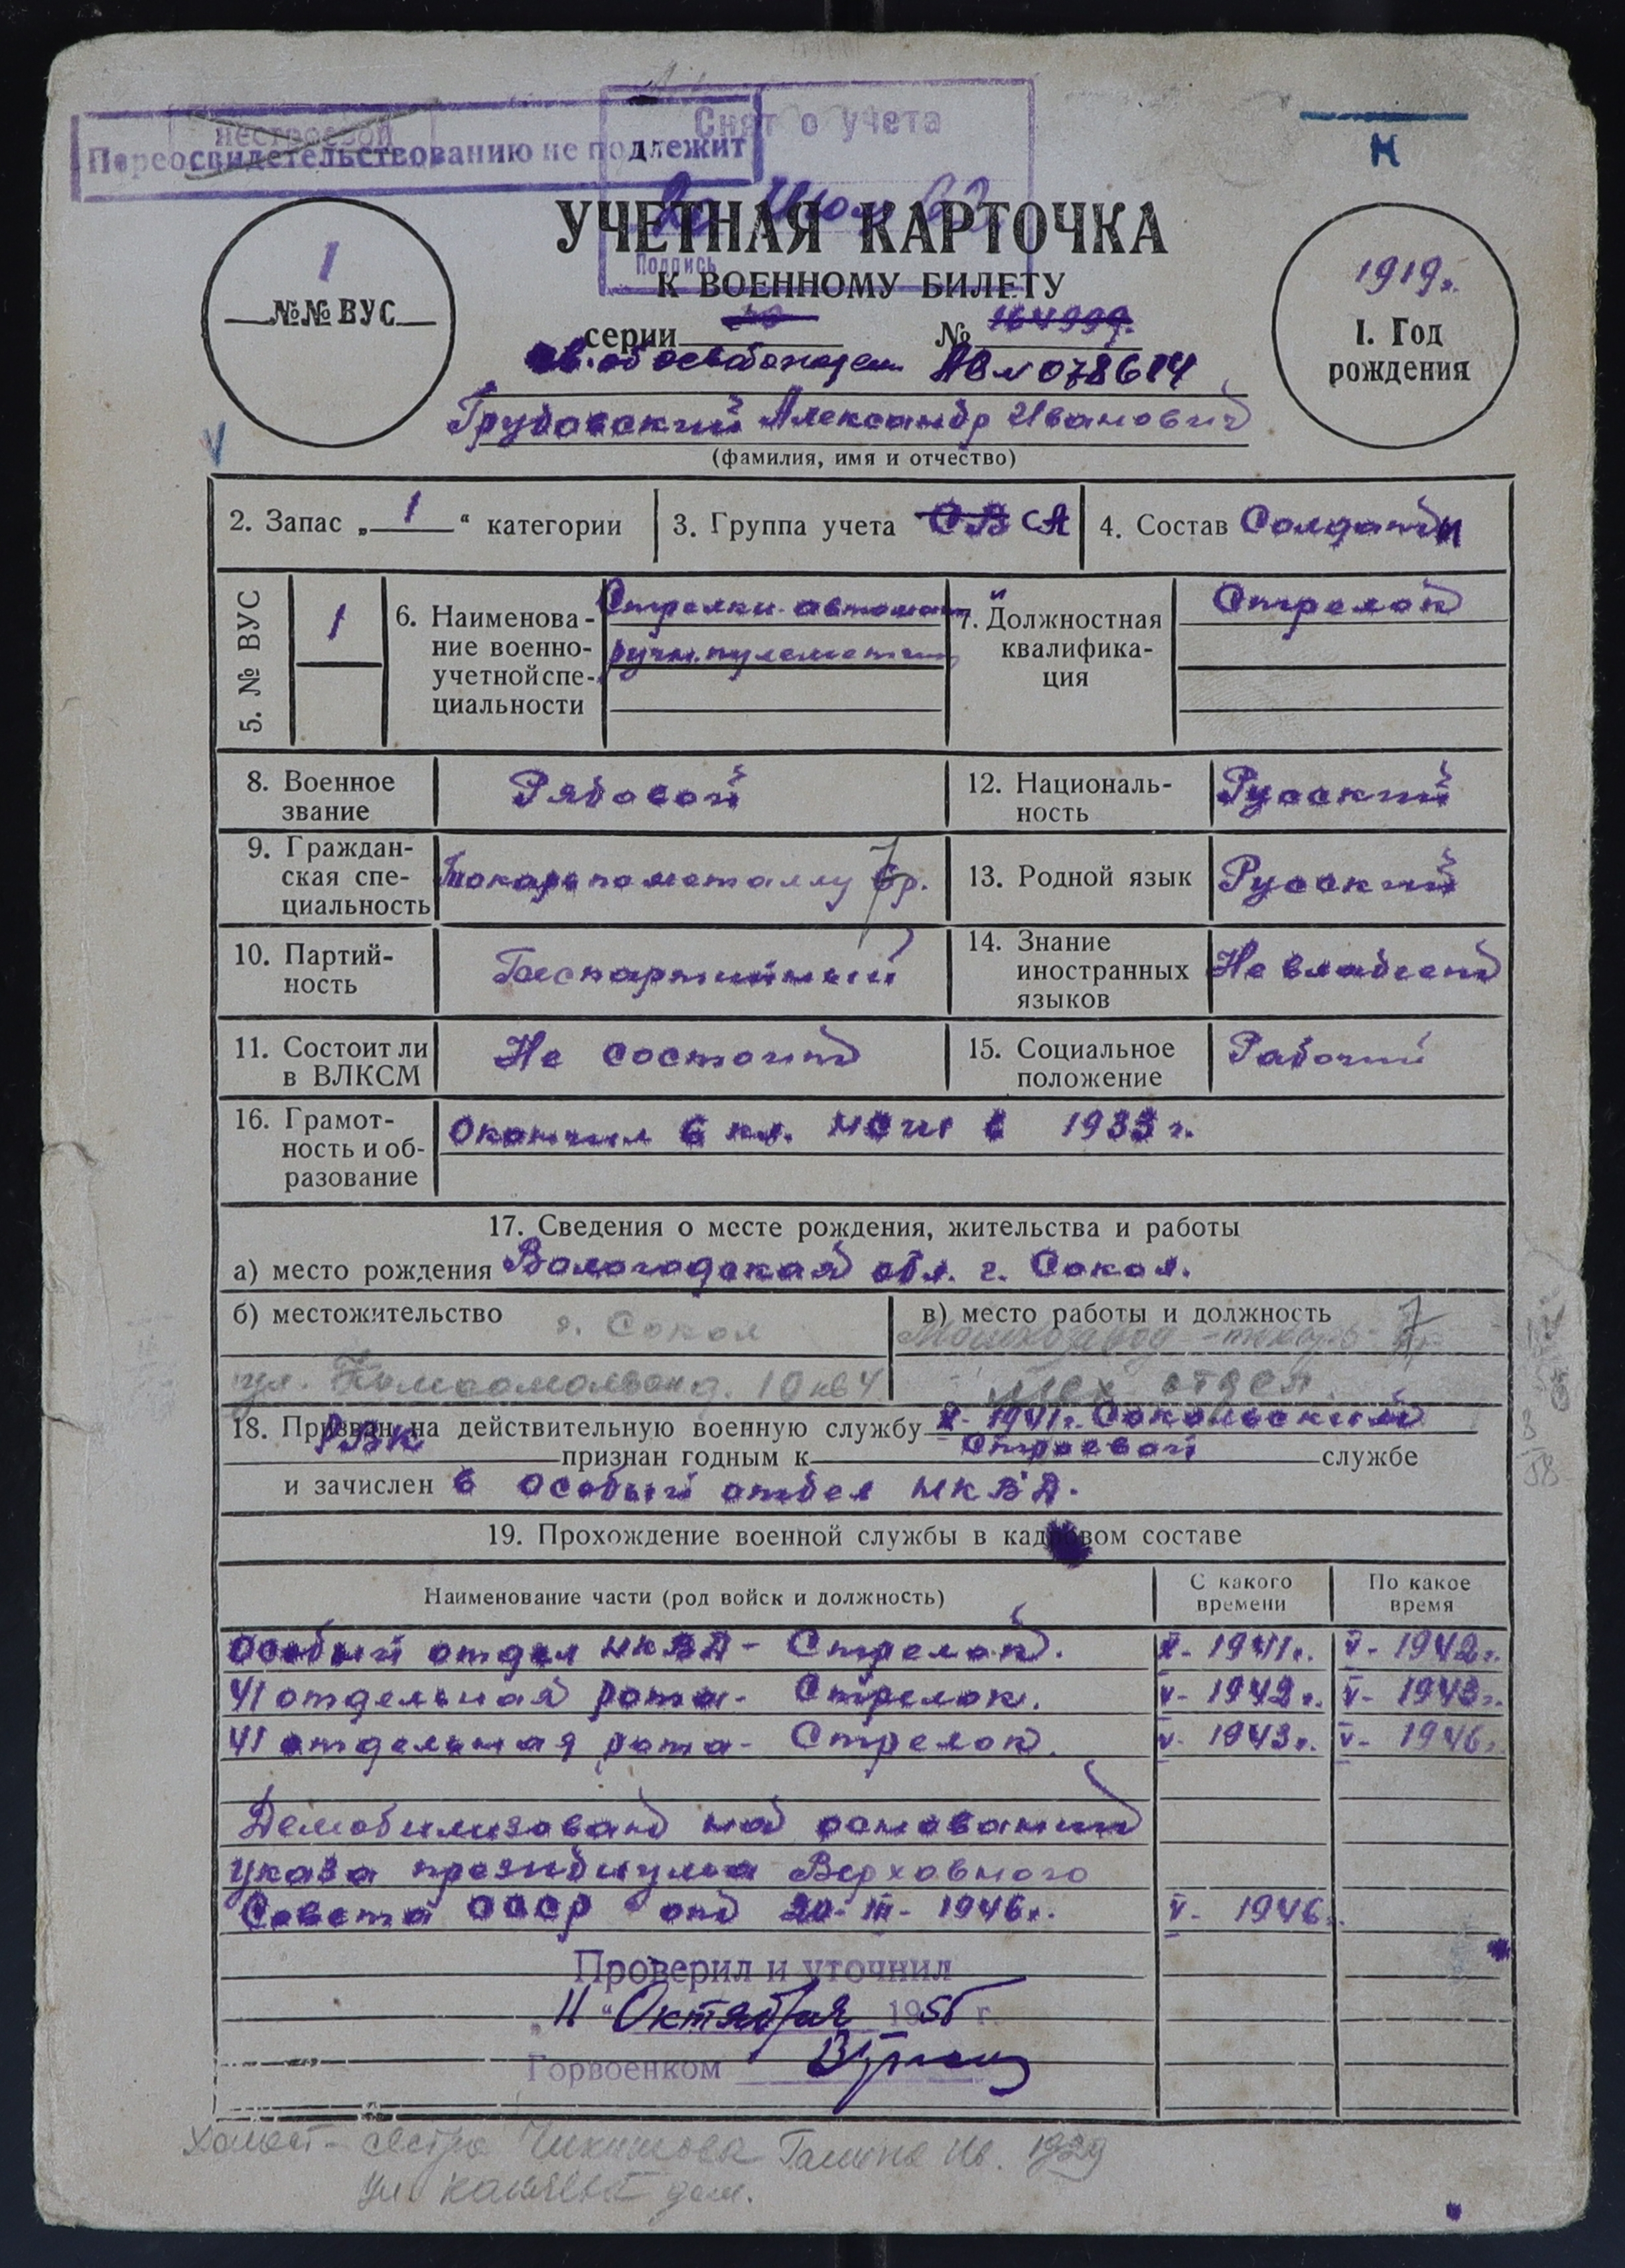 нестроевой
Переосвидетельствованию не подлежит
Снят с учета
Подпись
Н
УЧЕТНАЯ КАРТОЧКА
К ВОЕННОМУ БИЛЕТУ
1
№№ ВУС
1919г.
1. Год рождения
серии №
св. об освобожден АВ № 078614
Трудовский Александр Иванович
(фамилия, имя и отчество)
2. Запас „ 1 “ категории
3. Группа учета СВ СА
4. Состав Солдаты
5. № ВУС 1
6. Наименова-
ние военно-
учетной спе-
циальности
Стрелки автомат
ручн. пулеметчик
7. Должностная
квалифика-
ция
Стрелок
8. Военное
звание
Рядовой
12. Националь-
ность
Русский
9. Граждан-
ская спе-
циальность
Токарь по металлу 7 6р.
13. Родной язык Русский
10. Партий-
ность
Беспартийный
14. Знание
иностранных
языков
Не владеет
11. Состоит ли
в ВЛКСМ
Не состоит
15. Социальное
положение
Рабочий
16. Грамот-
ность и об-
разование
Окончил 6 кл. НСШ в 1933 г.
17. Сведения о месте рождения, жительства и работы
а) место рождения Вологодская обл. г. Сокол.
б) местожительство г. Сокол
ул. Комсомольская д. 10 кв 4
в) место работы и должность
токарь 7
мех отдел.
18. Призван на действительную военную службу X- 1941г. Сокольский
РВК признан годным к строевой службе
и зачислен в особый отдел НКВД.
19. Прохождение военной службы в кадровом составе
Наименование части (род войск и должность)
С какого
времени
По какое
время
Особый отдел НКВД - Стрелок. X- 1941г. V- 1942г.
41 отдельная рота - Стрелок. V- 1942г. V- 1943г.
41 отдельная рота - Стрелок. V- 1943г. V- 1946г.
Демобилизован на основании
указа президиума Верховного
Совета СССР от 20- III- 1946г. V- 1946г.
Проверил и уточнил
„11“ Октября 1956 г.
Горвоенком
Холост - сестра Галина Ив. 1929
ул. дом.